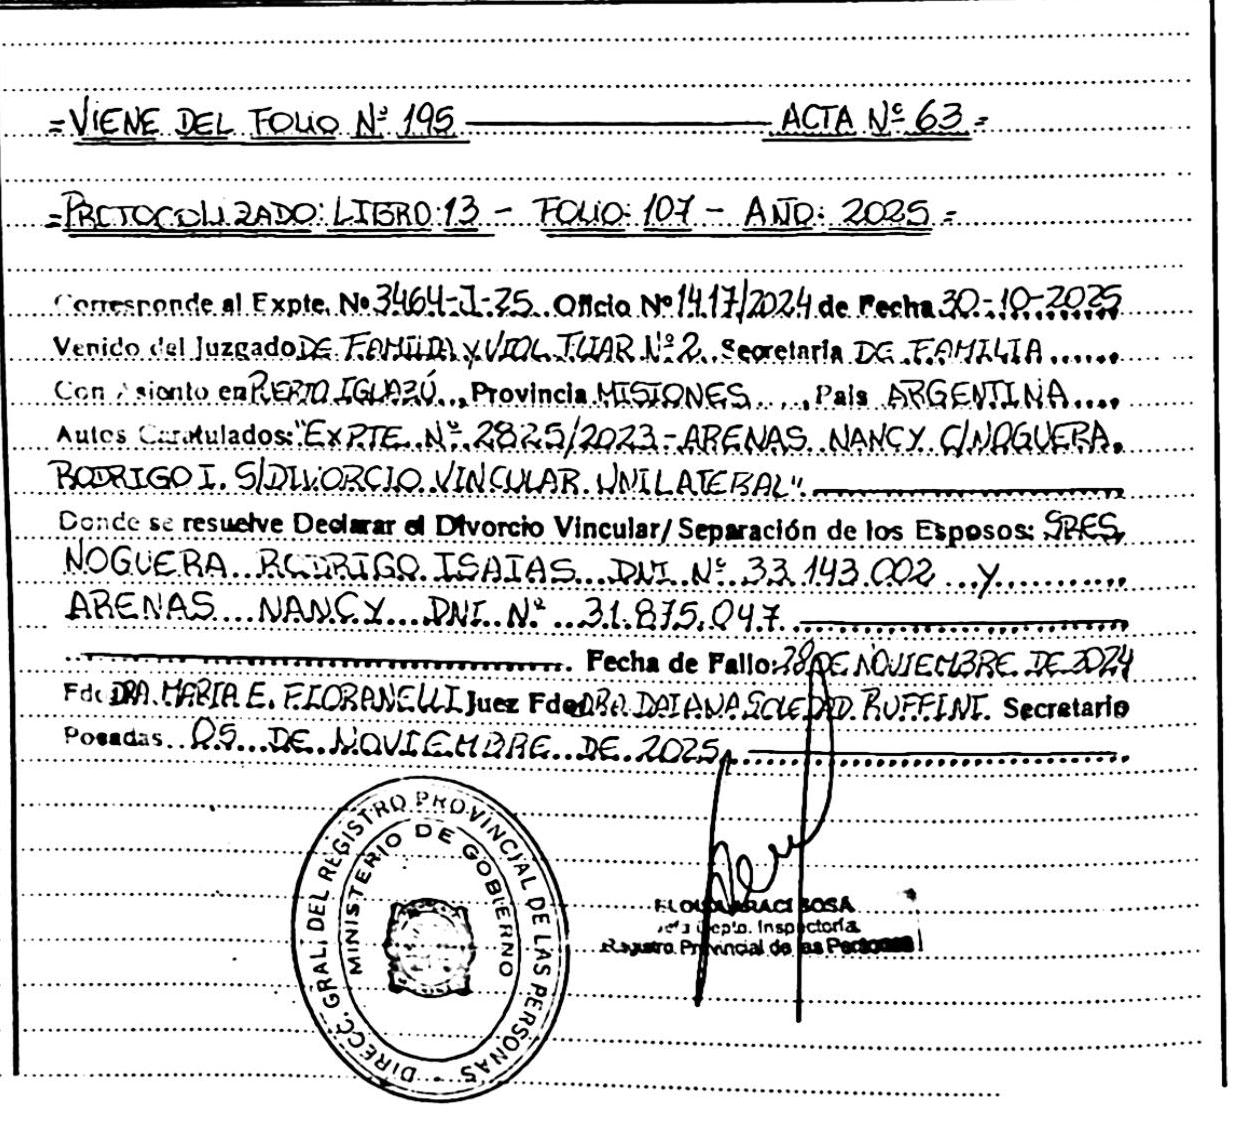 =VIENE DEL FOLIO Nº 195 ACTA Nº 63=
=PROTOCOLIZADO: LIBRO: 13 - FOLIO: 107 - AÑO: 2025=
Corresponde al Expte. Nº 3464-J-25.. Oficio Nº 1417/2024 de Fecha 30-10-2025
Venido del Juzgado DE FAMILIA y VIOL. FLIAR. Nº 2.. Secretaría DE FAMILIA......
Con Asiento en PUERTO IGUAZÚ.., Provincia MISIONES..., País ARGENTINA....
Autos Caratulados: "EXPTE. Nº 2825/2023-ARENAS NANCY C/NOGUERA
RODRIGO I. S/DIVORCIO VINCULAR UNILATERAL".
Donde se resuelve Declarar el Divorcio Vincular/ Separación de los Esposos: SRES.
NOGUERA RODRIGO ISAIAS DNI Nº 33.143.002 y
ARENAS NANCY DNI Nº 31.875.047.
Fecha de Fallo: 28 DE NOVIEMBRE DE 2024
Fdo DRA. MARIA E. FIORANELLI Juez Fdo DRA. DAIANA SOLEDAD RUFFINI. Secretario
Posadas.. 05 DE NOVIEMBRE DE 2025.
DIRECC. GRAL. DEL REGISTRO PROVINCIAL DE LAS PERSONAS
MINISTERIO DE GOBIERNO
SOSA
Depto. Inspectoría
Registro Provincial de las Personas